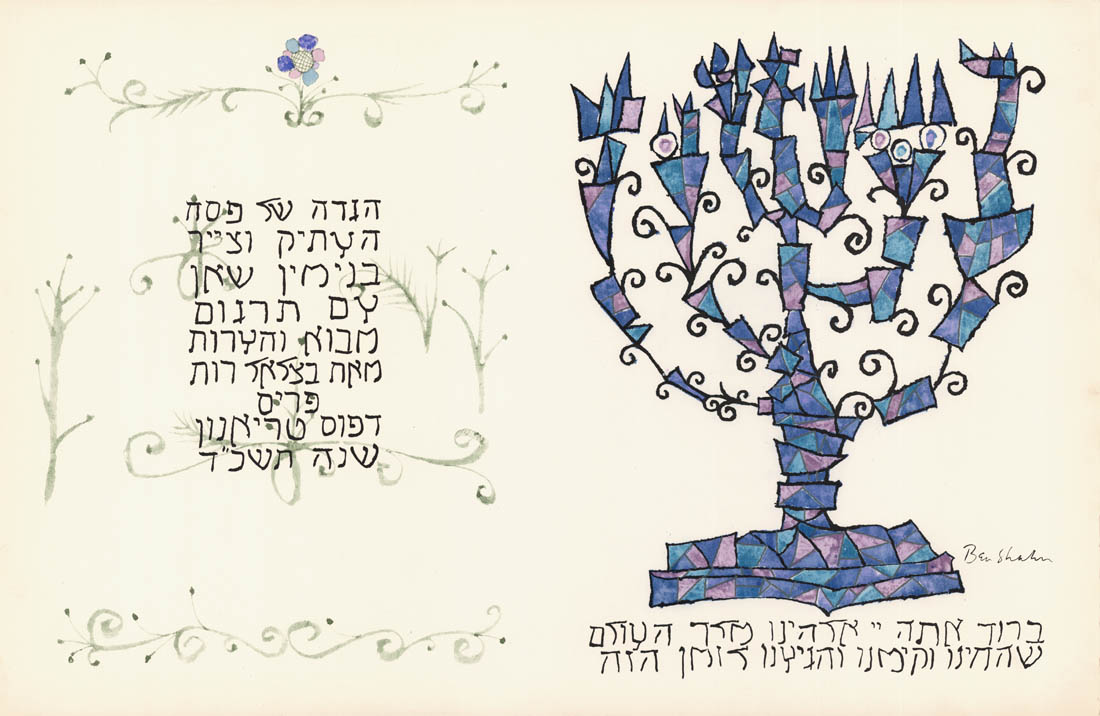 הגדה של פסח
העתיק וצייר
בנימין שאן
עם תרגום
מבוא והערות
מאת בצלאל רות
פריס
דפוס טריאנון
שנה תשכ״ד
Ben Shahn
ברוך אתה יי אלהינו מלך העולם
שהחינו וקימנו והגיענו לזמן הזה